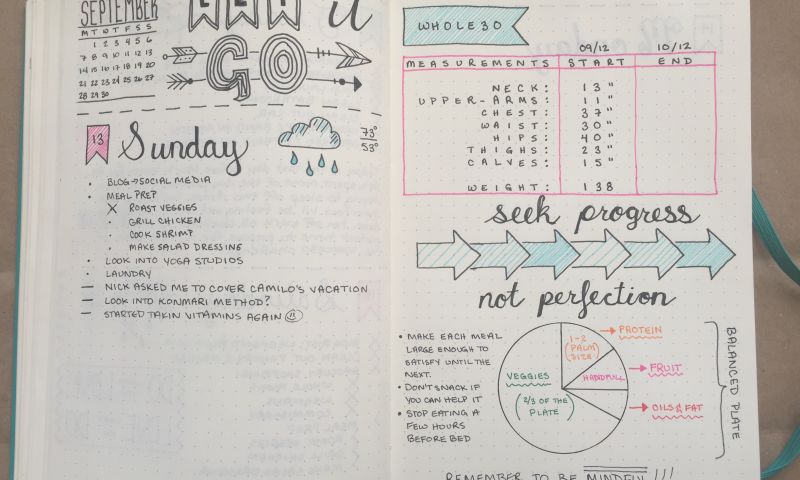 SEPTEMBER
M T W T F S S
1 2 3 4 5 6
7 8 9 10 11 12 13
14 15 16 17 18 19 20
21 22 23 24 25 26 27
28 29 30
LET it
GO
13 Sunday
73°
53°
• BLOG → SOCIAL MEDIA
• MEAL PREP
X ROAST VEGGIES
• GRILL CHICKEN
• COOK SHRIMP
• MAKE SALAD DRESSING
• LOOK INTO YOGA STUDIOS
• LAUNDRY
— NICK ASKED ME TO COVER CAMILO'S VACATION
— LOOK INTO KONMARI METHOD?
— STARTED TAKIN VITAMINS AGAIN
WHOLE30
09/12 10/12
MEASUREMENTS START END
NECK: 13"
UPPER-ARMS: 11"
CHEST: 37"
WAIST: 30"
HIPS: 40"
THIGHS: 23"
CALVES: 15"
WEIGHT: 138
seek progress
not perfection
• MAKE EACH MEAL
LARGE ENOUGH TO
SATISFY UNTIL THE
NEXT.
• DON'T SNACK IF
YOU CAN HELP IT
• STOP EATING A
FEW HOURS
BEFORE BED
VEGGIES
(2/3 OF THE
PLATE)
1-2
(PALM
SIZE)
HANDFULL
→ PROTEIN
→ FRUIT
→ OILS & FAT
BALANCED PLATE
REMEMBER TO BE MINDFUL!!!